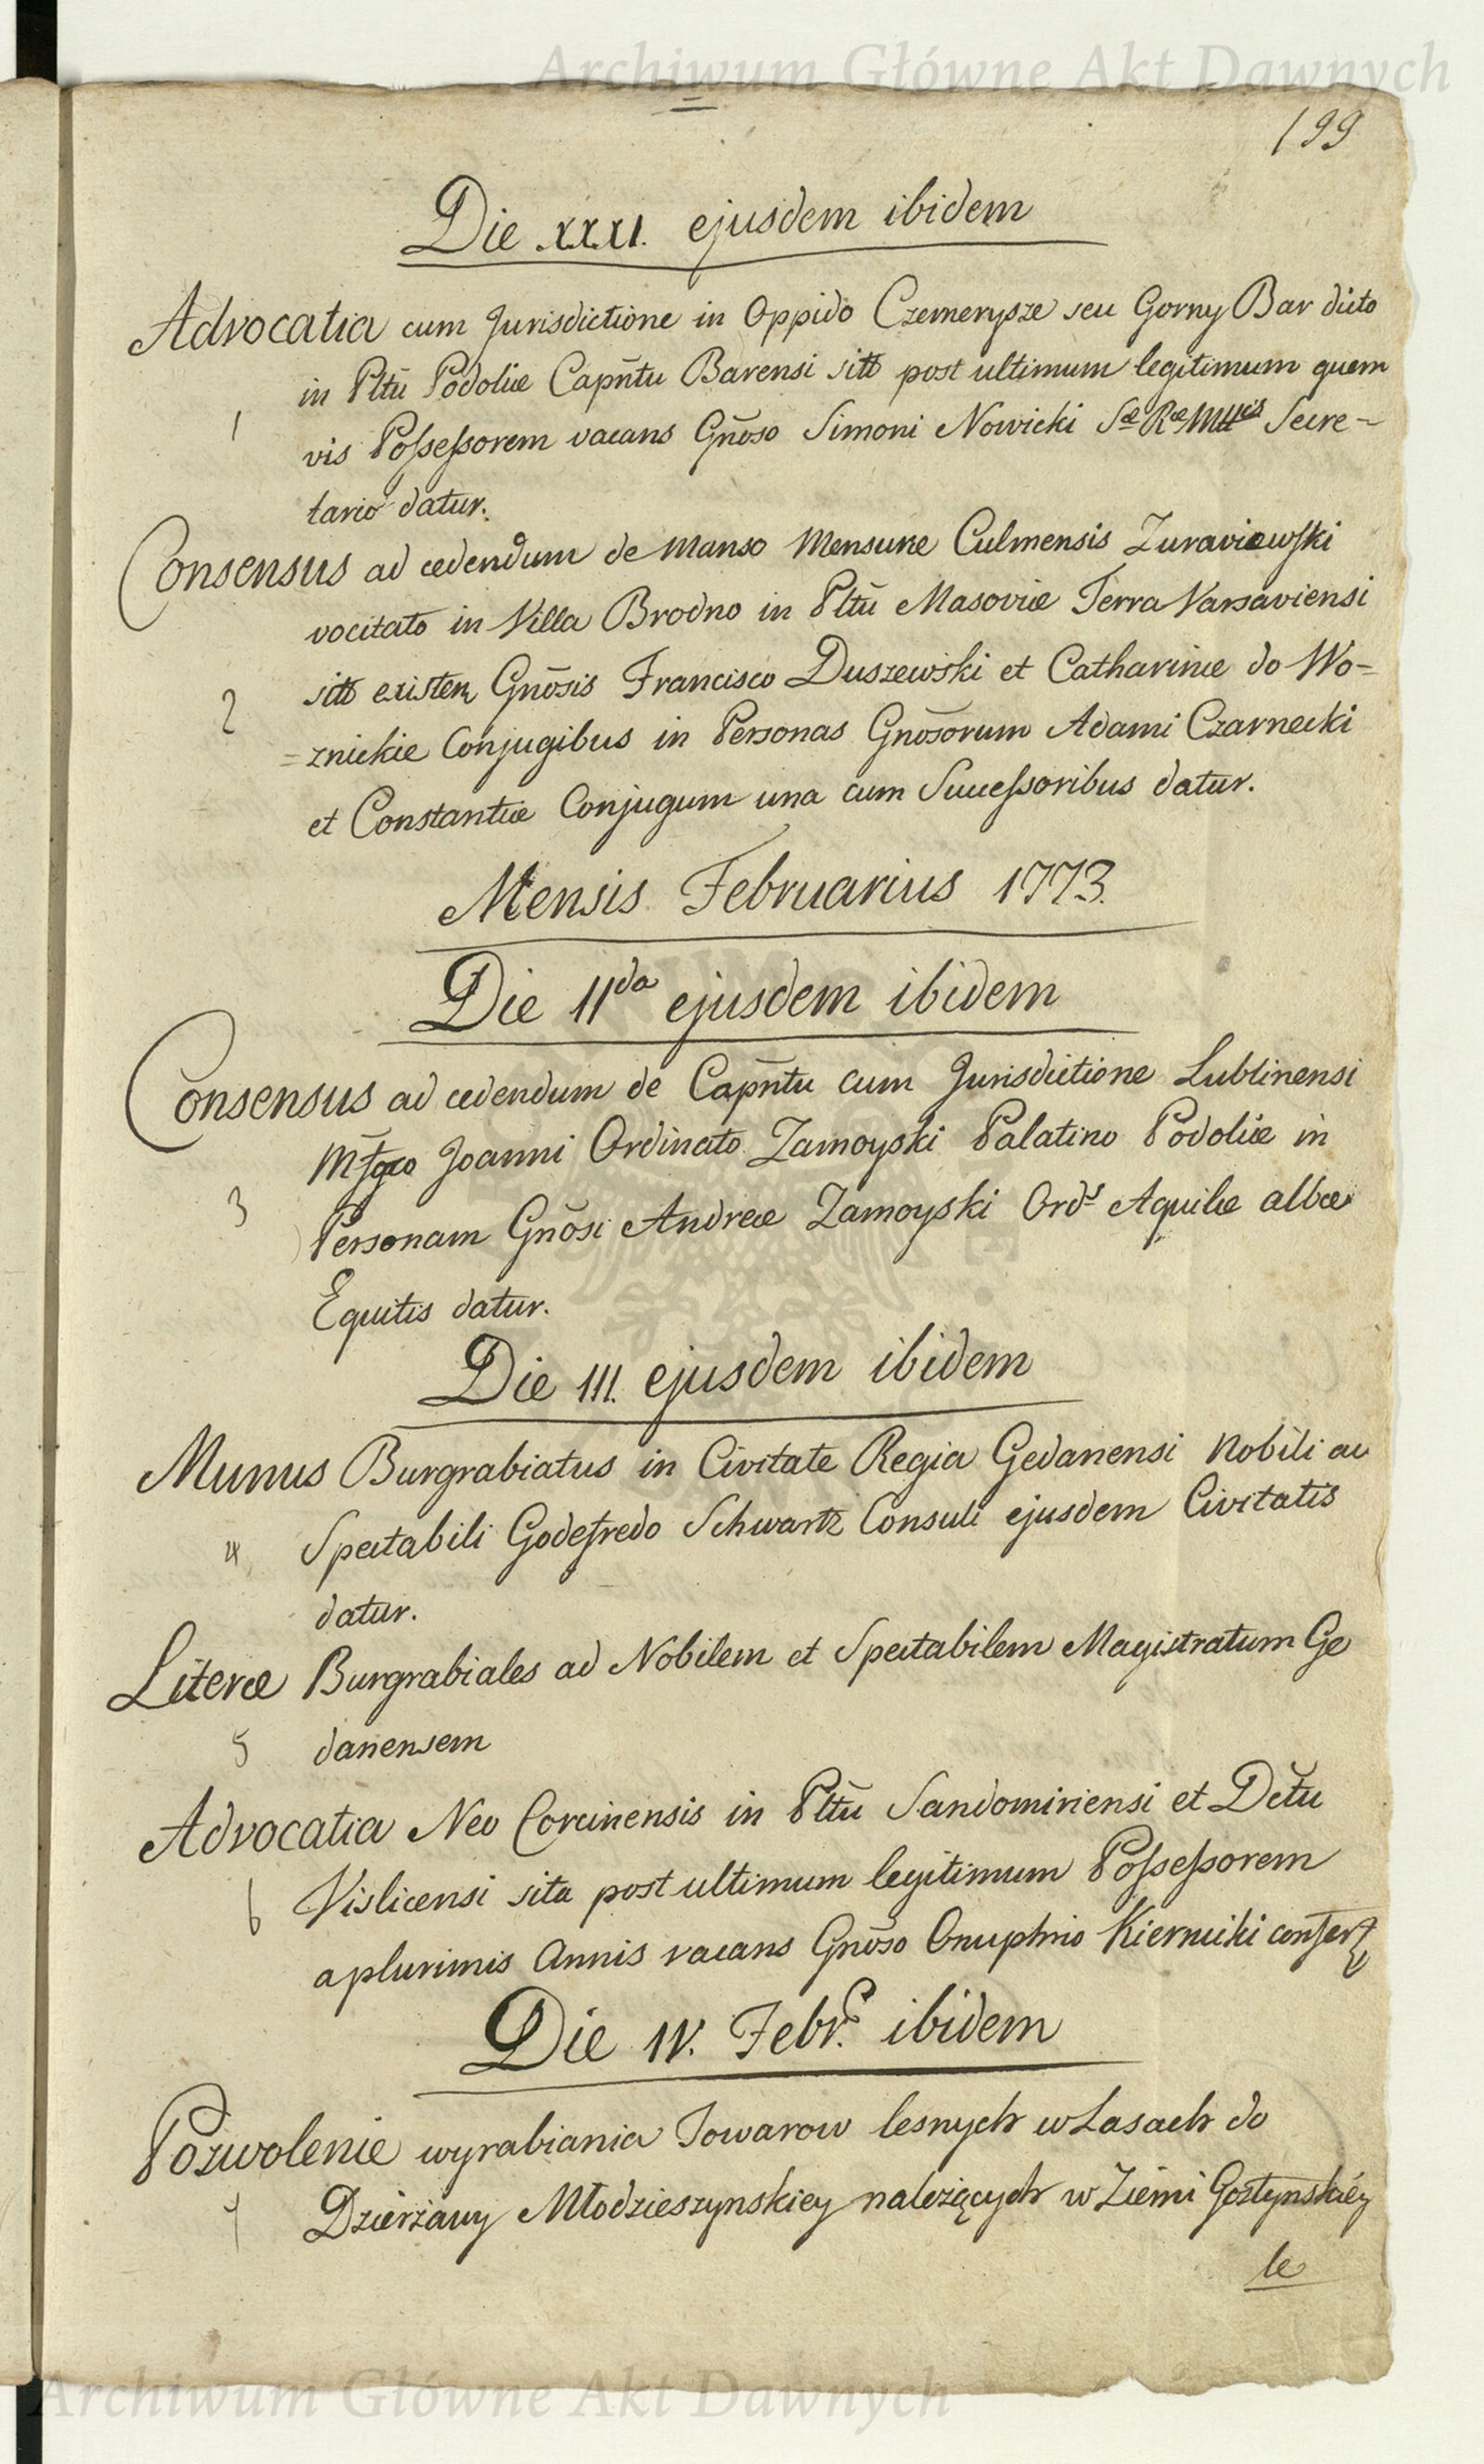 Archiwum Główne Akt Dawnych
199
Die XXXI. ejusdem ibidem
Advocatia cum Jurisdictione in Oppido Czemerysze seu Gorny Bar dicto
in Pltũ Podoliæ Capñtu Barensi sitt post ultimum legitimum quem
1 vis Possessorem vacans Gñoso Simoni Nowicki Sæ Ræ Mttis Secre-
tario datur.
Consensus ad cedendum de Manso Mensuræ Culmensis Zuraviewski
vocitato in Villa Brodno in Pltũ Masoviæ Terra Varsaviensi
2 sitt existen Gnõsis Francisco Duszewski et Catharinæ do Wo=
=znickie Conjugibus in Personas Gnõsorum Adami Czarnecki
et Constantiæ Conjugum una cum Successoribus datur.
Mensis Februarius 1773.
Die IIda ejusdem ibidem
Consensus ad cedendum de Capñtu cum Jurisdictione Lublinensi
Mfgco Joanni Ordinato Zamoyski Palatino Podoliæ in
3 Personam Gnõsi Andreæ Zamoyski Ords Aquilæ albæ
Equitis datur.
Die III. ejusdem ibidem
Munus Burgrabiatus in Civitate Regia Gedanensi Nobili ac
4 Spectabili Godefredo Schwartz Consuli ejusdem Civitatis
datur.
Literæ Burgrabiales ad Nobilem et Spectabilem Magistratum Ge
5 danensem
Advocatia Neo Corcinensis in Pltũ Sandomiriensi et Dčtu
6 Vislicensi sita post ultimum legitimum Possessorem
a plurimis Annis vacans Gnõso Onuphrio Kiernicki confert
Die IV. Febr. ibidem
Pozwolenie wyrabiania Towarow lesnych w Lasach do
7 Dzierżawy Młodzieszynskiey należących w Ziemi Gostynskiey
le
Archiwum Główne Akt Dawnych